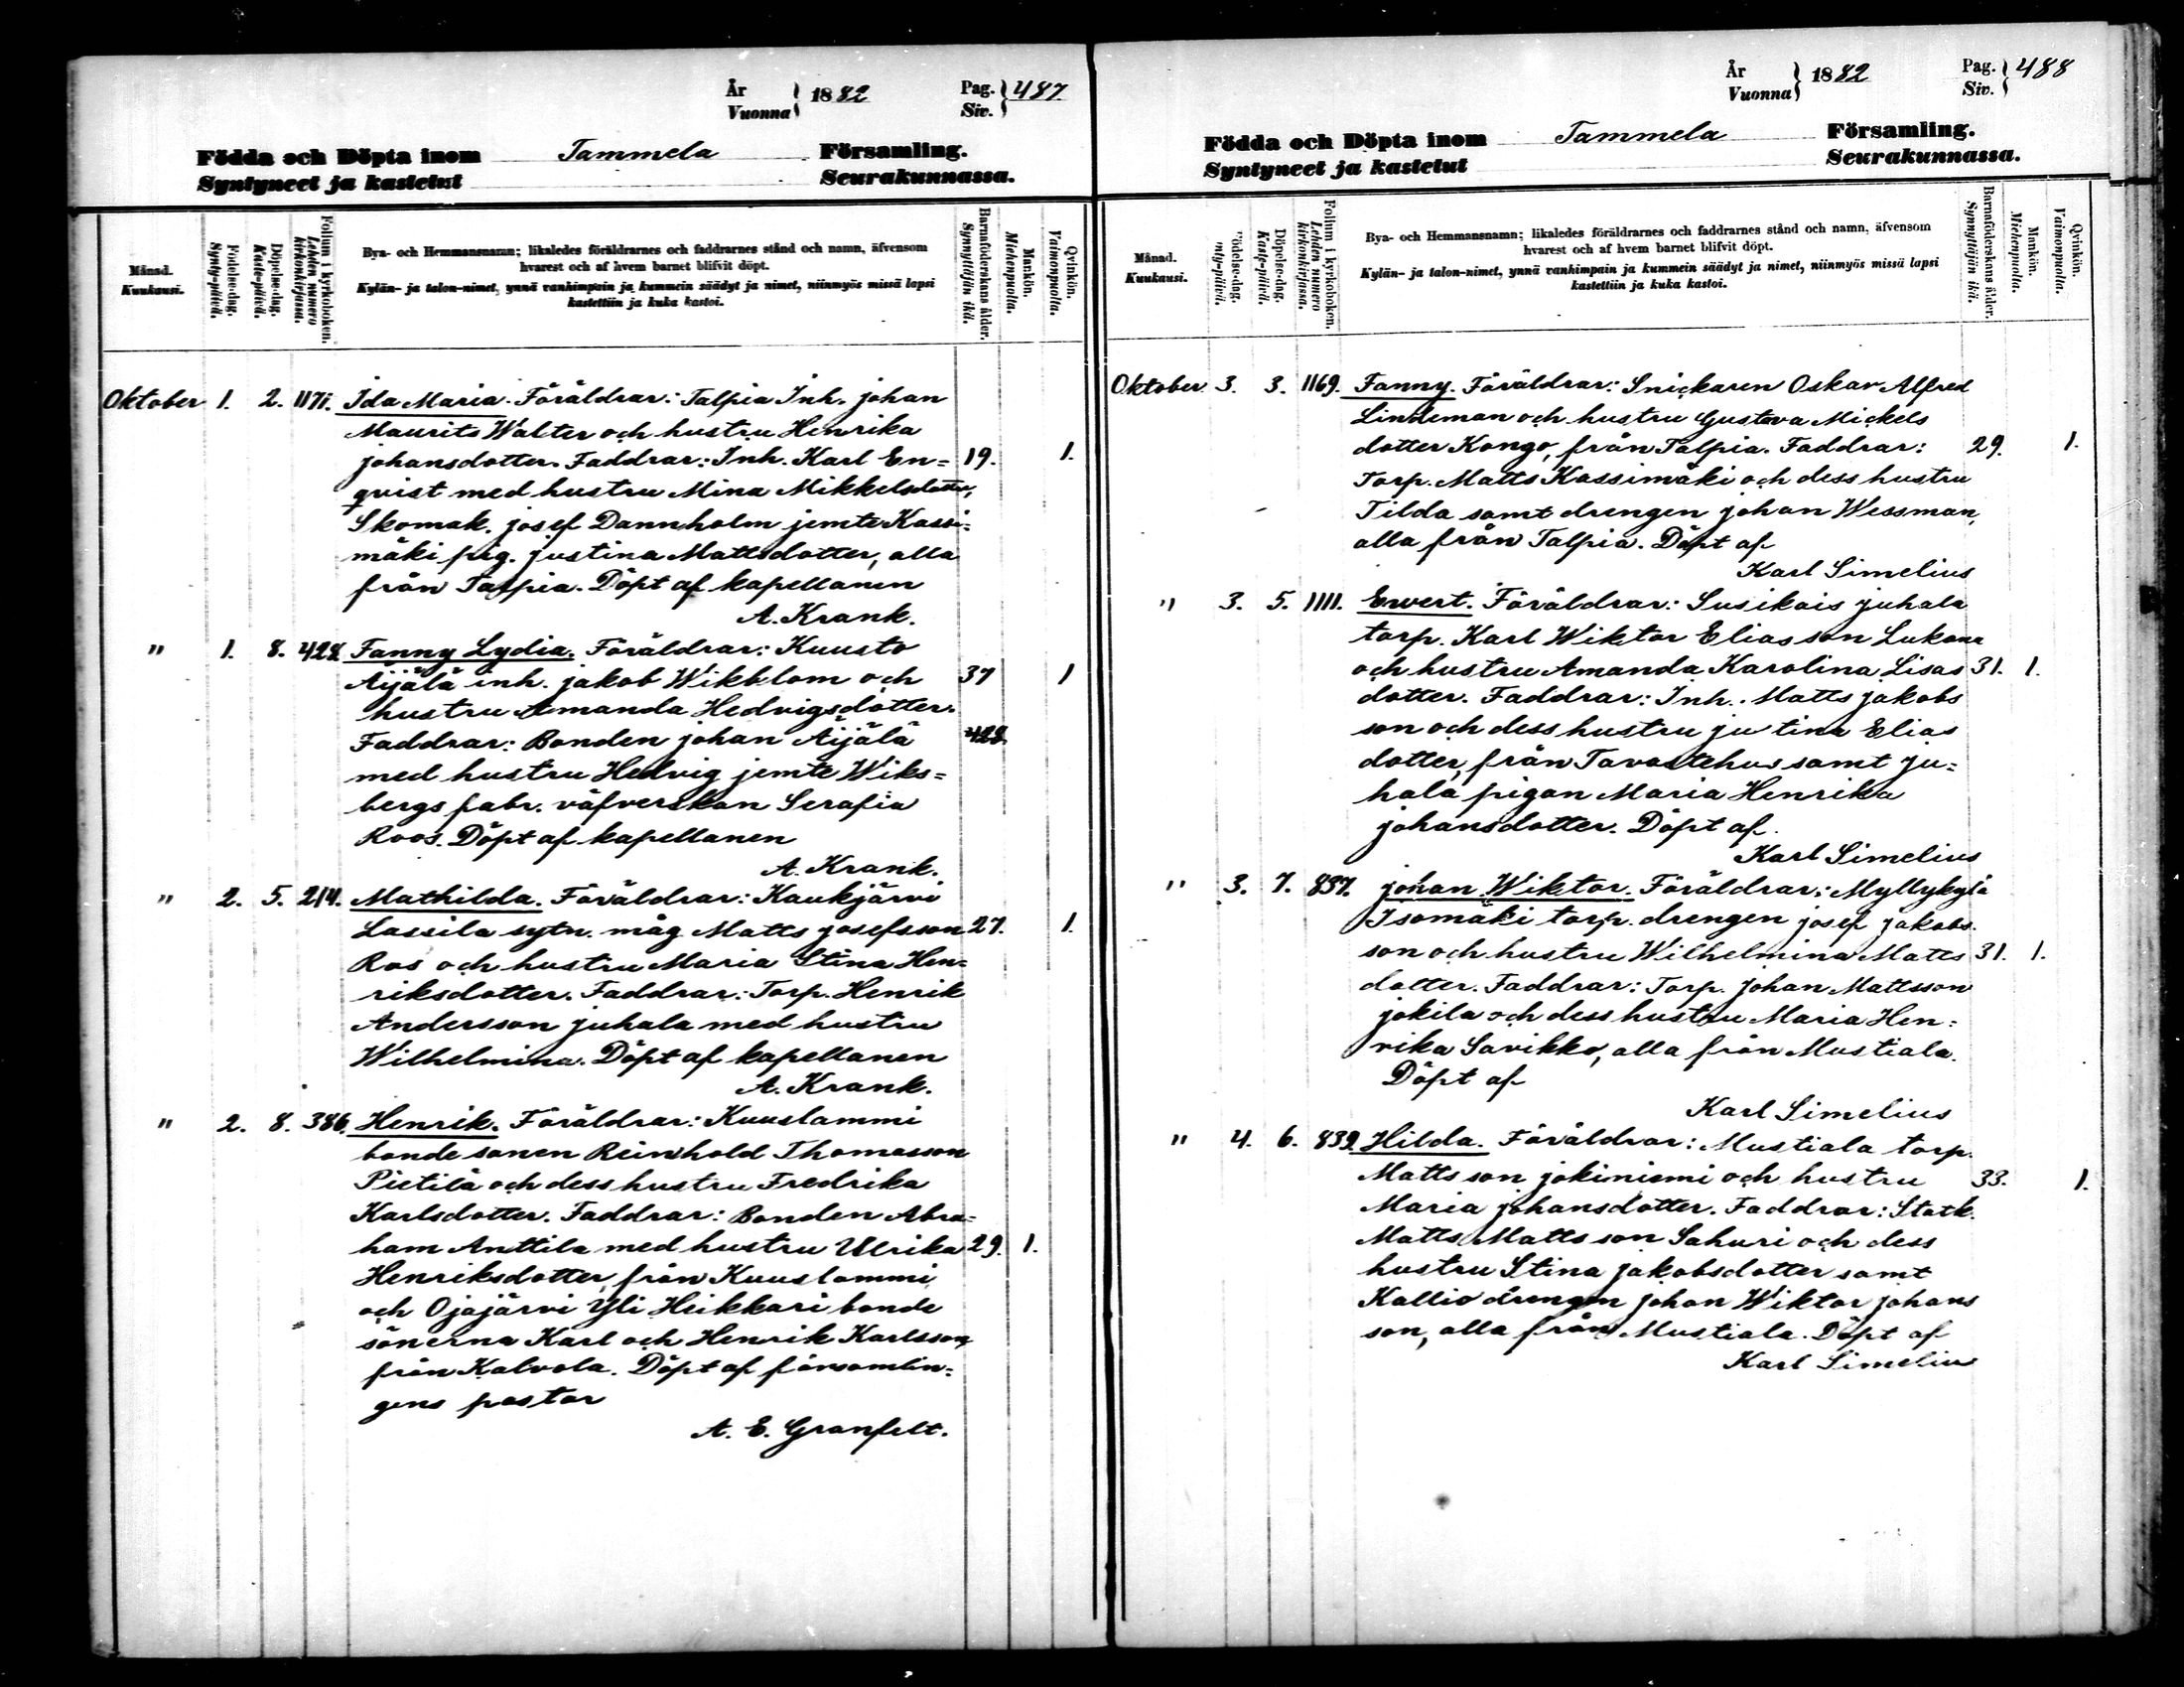 År
Vuonna } 1882
Pag.
Siv. } 487
Födda och Döpta inom Tammela Församling.
Syntyneet ja kastetut Seurakunnassa.
Månad.
Kuukausi.
Födelse-dag.
Synty-päivä.
Döpelse-dag.
Kaste-päivä.
Folium i kyrkoboken.
Lehden numero
kirkonkirjassa.
Bya- och Hemmansnamn; likaledes föräldrarnes och faddrarnes stånd och namn, äfvensom
hvarest och af hvem barnet blifvit döpt.
Kylän- ja talon-nimet, ynnä vanhimpain ja kummein säädyt ja nimet, niinmyös missä lapsi
kastettiin ja kuka kastoi.
Barnaföderskans ålder.
Synnyttäjän ikä.
Mankön.
Miehenpuolta.
Qvinkön.
Vaimonpuolta.
Oktober 1. 2. 1171. Ida Maria. Föräldrar: Talpia Inh. johan
Maurits Walter och hustru Henrika
johansdotter. Faddrar: Inh. Karl En= 19. 1.
qvist med hustru Mina Mikkelsdotter,
Skomak. josef Dannholm jemte Kassi=
mäki pig. justina Mattsdotter, alla
från Talpia. Döpt af kapellanen
A. Krank.
" 1. 8. 428. Fanny Lydia. Föräldrar: Kuusto
Äijälä inh. jakob Wikblom och 37 1
hustru Amanda Hedvigsdotter.
Faddrar: Bonden johan Äijälä 428.
med hustru Hedvig jemte Wiks=
bergs fabr. väfverskan Serafia
Roos. Döpt af kapellanen
A. Krank.
" 2. 5. 214. Mathilda. Föräldrar: Kaukjärvi
Lassila sytn. måg Matts josefsson 27. 1.
Ros och hustru Maria Stina Hen=
riksdotter. Faddrar: Torp. Henrik
Andersson juhala med hustru
Wilhelmina. Döpt af kapellanen
A. Krank.
" 2. 8. 386. Henrik. Föräldrar: Kuuslammi
bonde sonen Reinhold Thomasson
Pietilä och dess hustru Fredrika
Karlsdotter. Faddrar: Bonden Abra=
ham Anttila med hustru Ulrika 29. 1.
Henriksdotter, från Kuuslammi
och Ojajärvi Yli Heikkari bonde
sönerna Karl och Henrik Karlsson,
från Kalvola. Döpt af församlin=
gens pastor
A. E. Granfelt.
År
Vuonna } 1882
Pag.
Siv. } 488
Födda och Döpta inom Tammela Församling.
Syntyneet ja kastetut Seurakunnassa.
Månad.
Kuukausi.
Födelse-dag.
nty-päivä.
Döpelse-dag.
Kaste-päivä.
Folium i kyrkoboken.
Lehden numero
kirkonkirjassa.
Bya- och Hemmansnamn; likaledes föräldrarnes och faddrarnes stånd och namn, äfvensom
hvarest och af hvem barnet blifvit döpt.
Kylän- ja talon-nimet, ynnä vanhimpain ja kummein säädyt ja nimet, niinmyös missä lapsi
kastettiin ja kuka kastoi.
Barnaföderskans ålder.
Synnyttäjän ikä.
Mankön.
Miehenpuolta.
Qvinkön.
Vaimonpuolta.
Oktober 3. 3. 1169. Fanny. Föräldrar: Snickaren Oskar Alfred
Lindeman och hustru Gustava Mickels
dotter Kongo, från Talpia. Faddrar: 29. 1.
Torp. Matts Kassimäki och dess hustru
Tilda samt drengen johan Wessman,
alla från Talpia. Döpt af
Karl Simelius
" 3. 5. 1111. Ewert. Föräldrar: Susikais juhala
torp. Karl Wiktor Eliasson Lukana
och hustru Amanda Karolina Lisas 31. 1.
dotter. Faddrar: Inh. Matts jakobs
son och dess hustru ju tina Elias
dotter, från Tavastehus samt ju=
hala pigan Maria Henrika
johansdotter. Döpt af
Karl Simelius
" 3. 7. 837. johan Wiktor. Föräldrar: Myllykylä
Isomäki torp. drengen josef jakobs.
son och hustru Wilhelmina Matts 31. 1.
dotter. Faddrar: Torp. johan Mattsson
jokila och dess hustru Maria Hen=
rika Savikko, alla från Mustiala.
Döpt af
Karl Simelius
" 4. 6. 839. Hilda. Föräldrar: Mustiala torp.
Matts son jokiniemi och hustru 33. 1.
Maria johansdotter. Faddrar: Statk.
Matts Matts son Sahuri och dess
hustru Stina jakobsdotter samt
Kallio drengen johan Wiktor johans
son, alla från Mustiala. Döpt af
Karl Simelius